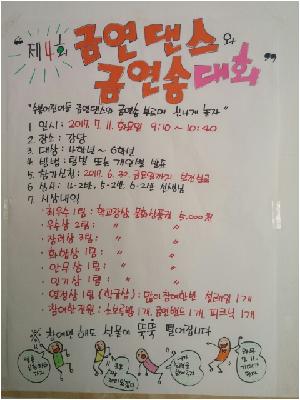 "제4회 금연댄스와
금연송 대회"
1. 일시 : 2017. 7. 11. 화요일 9:10~10:40
2. 장소 : 강당
3. 대상 : 1학년~6학년
4. 방법 : 팀별 또는 개인별 발표
5. 참가신청 : 2017. 6. 30. 금요일까지 보건실로
6. 심사 : 4-2반, 5-2반, 6-2반 선생님
7. 시상내역
· 최우수 1팀 : 학교장상 문화상품권 5,000원
· 우수상 2팀 : 〃 〃
· 장려상 3팀 : 〃 〃
· 화합상 1팀 : 〃 〃
· 안무상 1팀 : 〃 〃
· 인기상 1팀 : 〃 〃
· 열정상 1팀 (학급상) : 많이 참여한 반
· 참가상 전원 : 1개, 금연밴드 1개, 피크닉 1개
참여만 해도 선물이 뚝뚝 떨어집니다